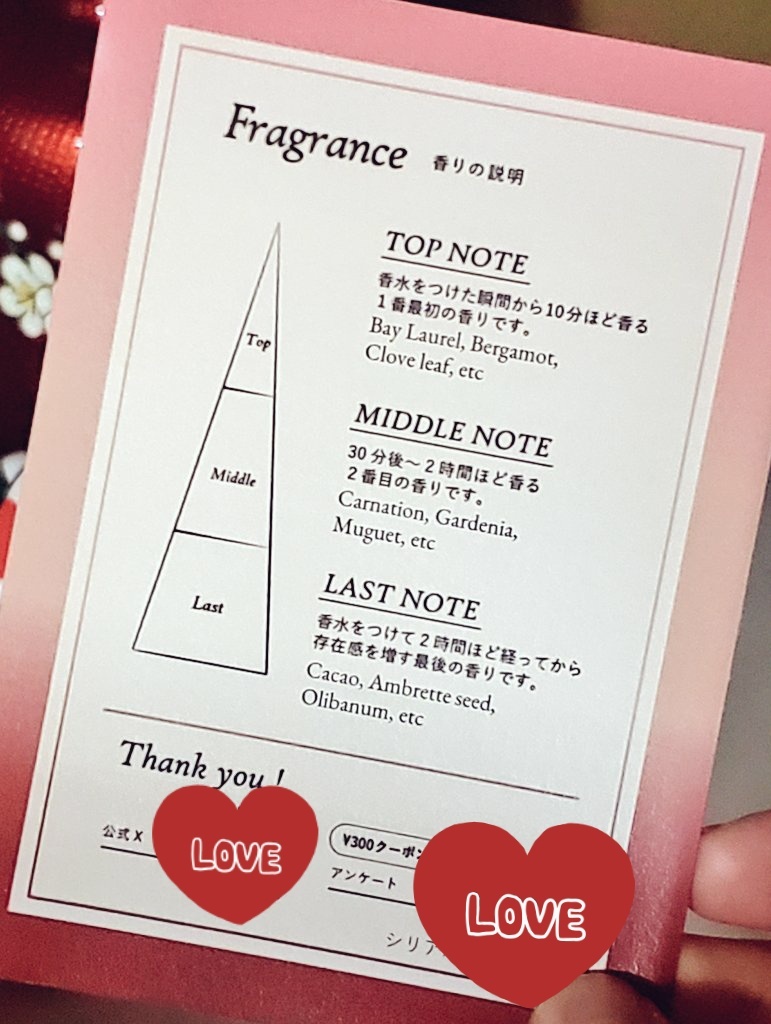 Fragrance 香りの説明
TOP NOTE
香水をつけた瞬間から10分ほど香る
1番最初の香りです。
Bay Laurel, Bergamot,
Clove leaf, etc
MIDDLE NOTE
30分後〜2時間ほど香る
2番目の香りです。
Carnation, Gardenia,
Muguet, etc
LAST NOTE
香水をつけて2時間ほど経ってから
存在感を増す最後の香りです。
Cacao, Ambrette seed,
Olibanum, etc
Top
Middle
Last
Thank you !
公式X
¥300クーポン
アンケート
シリア
LOVE
LOVE